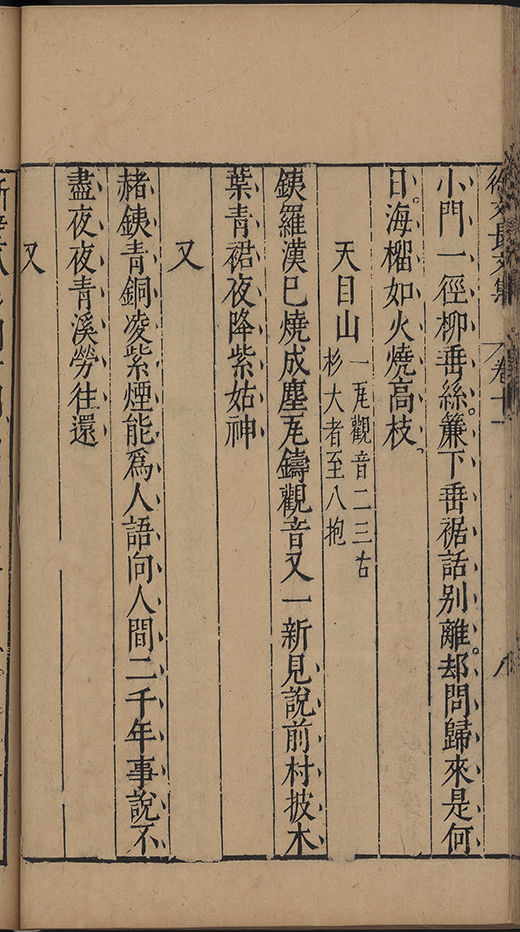 徐文長文集 卷十一
小門一徑柳垂絲。簾下垂裾話別離。却問歸來是何
日。海榴如火燒高枝。
天目山 一尾觀音二三古
杉大者至八抱
銕羅漢已燒成塵尾鑄觀音又一新見說前村披木
葉青裙夜降紫姑神
又
赭銕青銅凌紫煙能爲人語向人間二千年事說不
盡夜夜青溪勞往還
又